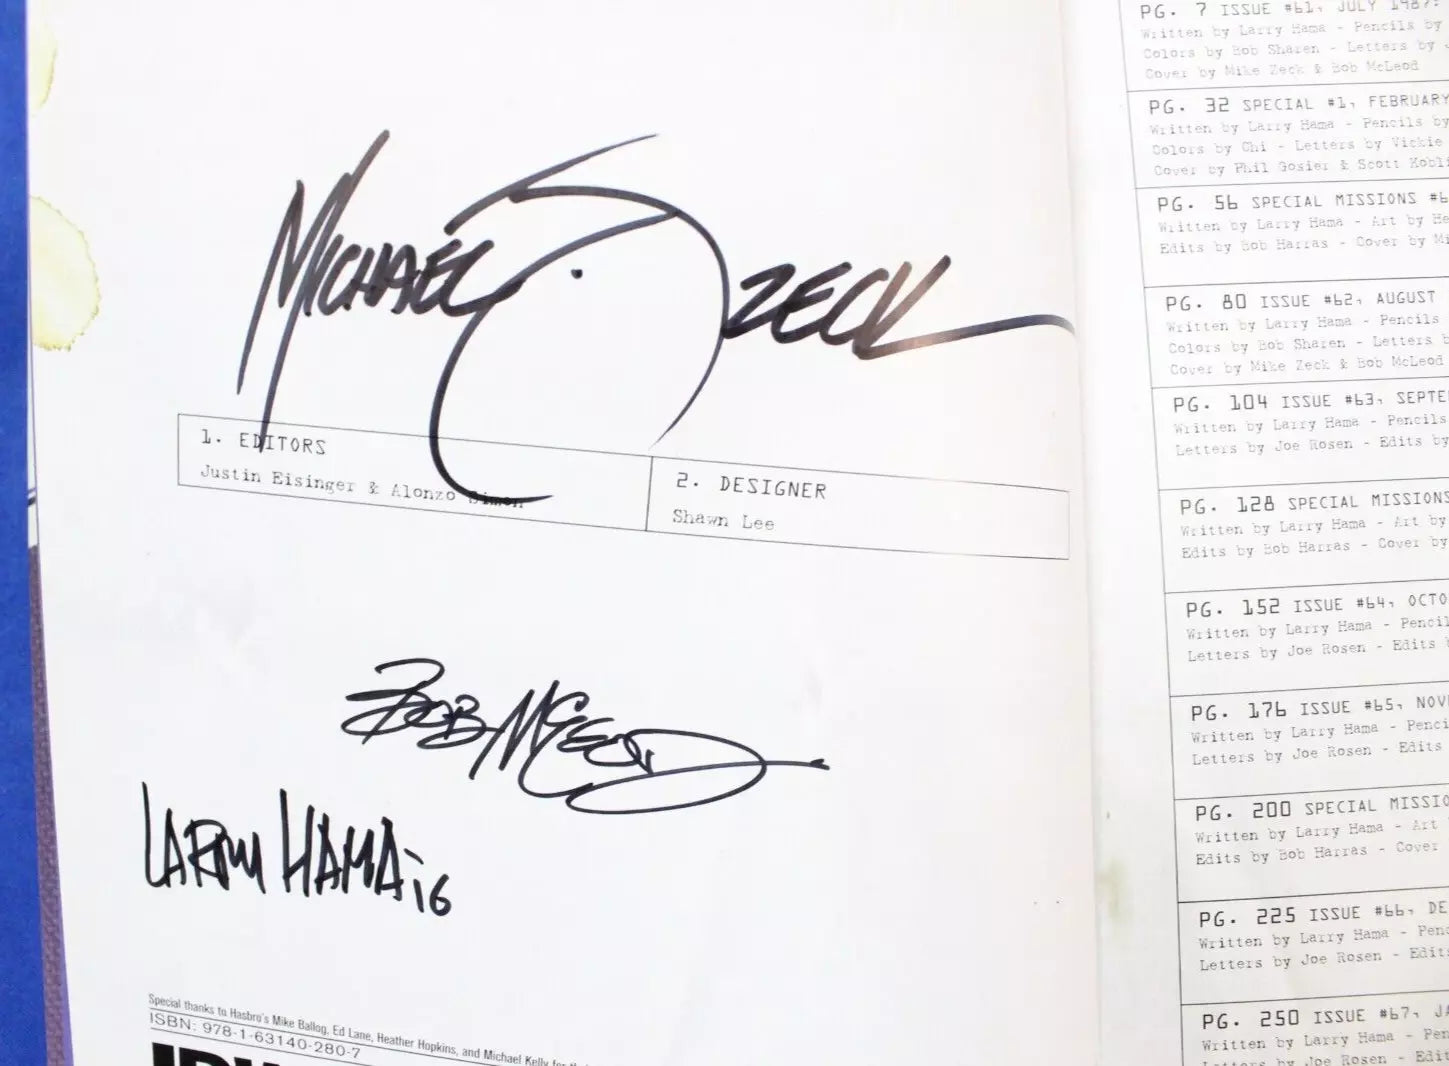 MICHAEL ZECK
1. EDITORS
Justin Eisinger & Alonzo Simon
2. DESIGNER
Shawn Lee
BOB MCLEOD
LARRY HAMA '16
Special thanks to Hasbro's Mike Ballog, Ed Lane, Heather Hopkins, and Michael Kelly for
ISBN: 978-1-63140-280-7
PG. 7 ISSUE #61, JULY 1987:
Written by Larry Hama - Pencils by
Colors by Bob Sharen - Letters by
Cover by Mike Zeck & Bob McLeod
PG. 32 SPECIAL #1, FEBRUARY
Written by Larry Hama - Pencils by
Colors by Chi - Letters by Vickie
Cover by Phil Gosier & Scott Kobli
PG. 56 SPECIAL MISSIONS #6
Written by Larry Hama - Art by He
Edits by Bob Harras - Cover by Mi
PG. 80 ISSUE #62, AUGUST
Written by Larry Hama - Pencils
Colors by Bob Sharen - Letters b
Cover by Mike Zeck & Bob McLeod
PG. 104 ISSUE #63, SEPTE
Written by Larry Hama - Pencils
Letters by Joe Rosen - Edits by
PG. 128 SPECIAL MISSIONS
Written by Larry Hama - Art by
Edits by Bob Harras - Cover by
PG. 152 ISSUE #64, OCTO
Written by Larry Hama - Pencil
Letters by Joe Rosen - Edits
PG. 176 ISSUE #65, NOV
Written by Larry Hama - Penci
Letters by Joe Rosen - Edits
PG. 200 SPECIAL MISSIO
Written by Larry Hama - Art
Edits by Bob Harras - Cover
PG. 225 ISSUE #66, DE
Written by Larry Hama - Penc
Letters by Joe Rosen - Edit
PG. 250 ISSUE #67, JA
Written by Larry Hama - Pen
Letters by Joe Rosen - Edit